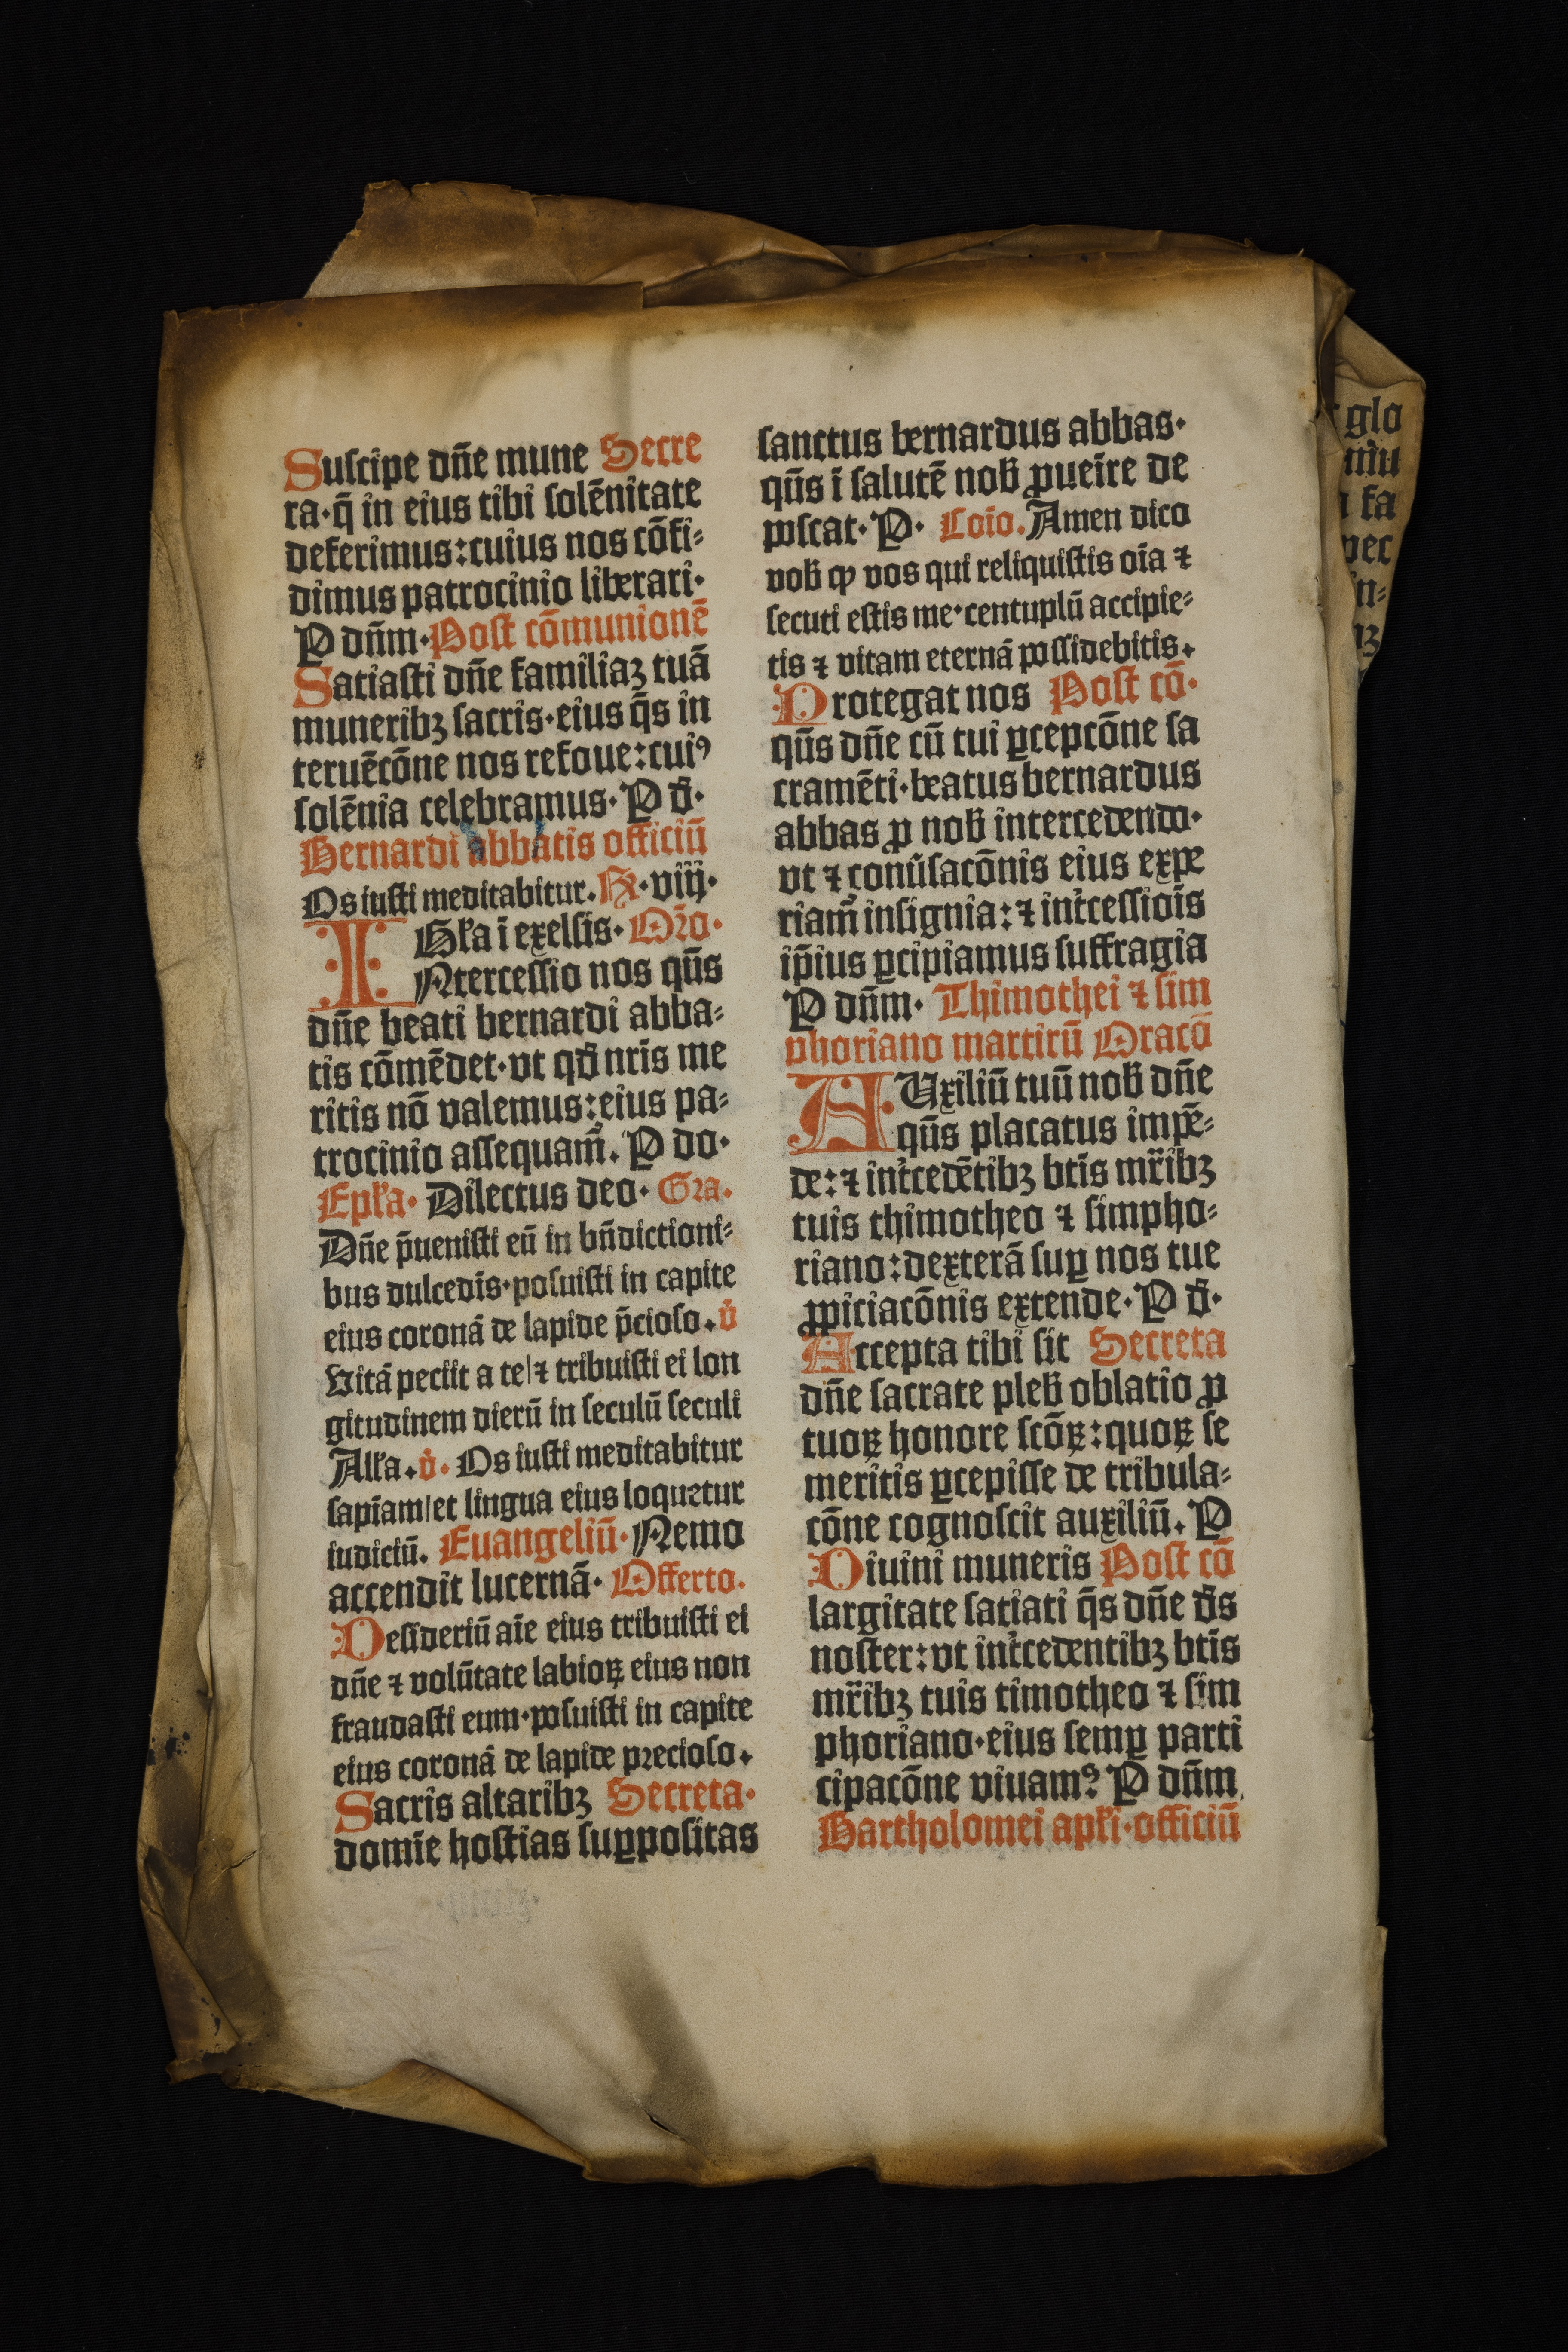 Suſcipe dn̄e mune Secre
ra·q̄ in eius tibi ſolēnitate
deferimus:cuius nos cōfi⸗
dimus patrocinio liberari·
P dn̄m·Poſt cōmunionē
Satiaſti dn̄e familiaꝫ tuā
muneribꝫ ſacris·eius q̄s in
teruēcōne nos refoue:cuiꝰ
ſolēnia celebramus·P d̄·
Bernardi abbatis officiū
Os iuſti meditabitur.℟·viij·
Gl̄a ī exelſis·Or̄o·
INterceſſio nos qūs
dn̄e beati bernardi abba⸗
tis cōmēdet·vt qd̄ nr̄is me
ritis nō valemus:eius pa⸗
trocinio aſſequam̄.P do·
Epl̄a·Dilectus deo·Gra.
Dn̄e p̄ueniſti eū in bn̄dictioni⸗
bus dulcedīs·poſuiſti in capite
eius coronā de lapide p̄cioſo.v̄
Vitā peciit a te|⁊ tribuiſti ei lon
gitudinem dierū in ſeculū ſeculi
All̄a.v̄·Os iuſti meditabitur
ſapīam|et lingua eius loquetur
iudiciū.Euangeliū·Nemo
accendit lucernā·Offerto.
Deſideriū aīe eius tribuiſti ei
dn̄e ⁊ volūtate labioꝝ eius non
fraudaſti eum·poſuiſti in capite
eius coronā de lapide precioſo.
Sacris altaribꝫ Secreta·
domīe hoſtias ſuꝑpoſitas
ſanctus bernardus abbas·
qūs ī ſalutē nob̄ ꝓueīre de
poſcat·P·Coīo.Amen dico
vob̄ ꝙ vos qui reliquiſtis oīa ⁊
ſecuti eſtis me·centuplū accipie⸗
tis ⁊ vitam eternā poſſidebitis.
Protegat nos Poſt cō·
qūs dn̄e cū tui ꝑcepcōne ſa
cramēti·beatus bernardus
abbas ꝓ nob̄ intercedendo·
vt ⁊ conūſacōnis eius expe
riam̄ inſignia:⁊ int̄ceſſiōis
ip̄ius ꝑcipiamus ſuffragia
P dn̄m·Thimothei ⁊ ſim
phoriano martirū Oracō
AUxiliū tuū nob̄ dn̄e
qūs placatus impē⸗
de:⁊ int̄cedētibꝫ btīs mr̄ibꝫ
tuis thimotheo ⁊ ſimpho⸗
riano:dexterā ſuꝑ nos tue
ꝓpiciacōnis extende·P d̄·
Accepta tibi ſit Secreta
dn̄e ſacrate pleb̄ oblatio ꝓ
tuoꝝ honore ſcōꝝ:quoꝝ ſe
meritis ꝑcepiſſe de tribula⸗
cōne cognoſcit auxiliū.P
Diuini muneris Poſt cō
largitate ſatiati q̄s dn̄e d̄s
noſter:vt int̄cedentibꝫ btīs
mr̄ibꝫ tuis timotheo ⁊ ſim
phoriano·eius ſemꝑ parti
cipacōne viuamꝰ?P dn̄m
Bartholomei apl̄i·officiū
glo
 fa
pec
in⸗